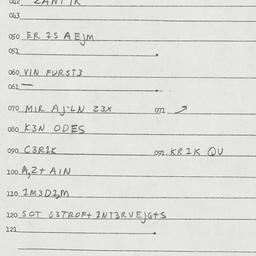 042 ZANT IK
043
050 ER 1S A EJM
051
060 VIN FURST3
061 —
070 MIR AJ-LN 23X 071
080 K3N ODES
090 C3R1K 091 KR1K QU
100 A,2+ A1N
110 1M3D1,M
120 SOT G3TROF+ 1NT3RVEJG+S
121